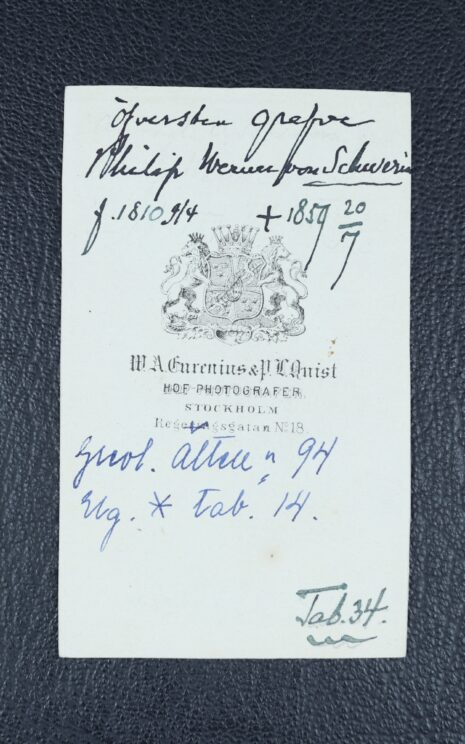 Öfversten grefve
Philip Werner von Schwerin
f. 1810 9/4 + 1859 20/7
W.A. Eurenius & P.L. Quist
HOF PHOTOGRAFER.
STOCKHOLM
Regeringsgatan No 18
Grevl. Ätten n 94
Elg. * tab. 14.
Tab. 34.